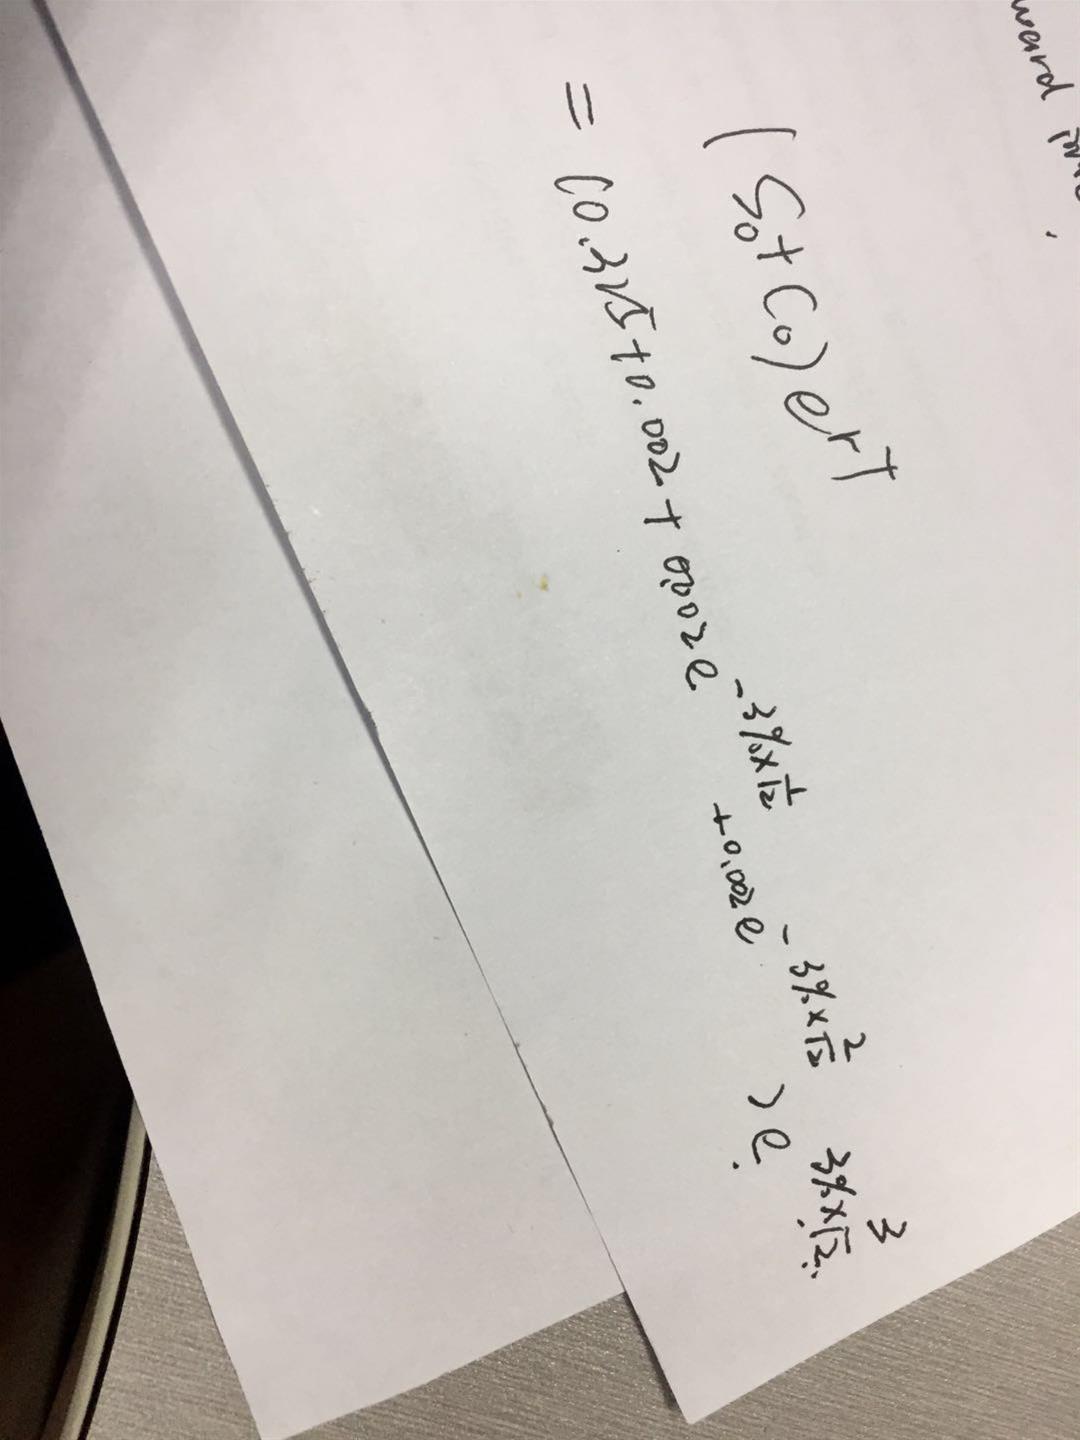 (S₀+C₀)e^{rT}
= (0.325+0.002+0.002e^{-3%×1/12}+0.002e^{-3%×2/12})e^{3%×3/12}